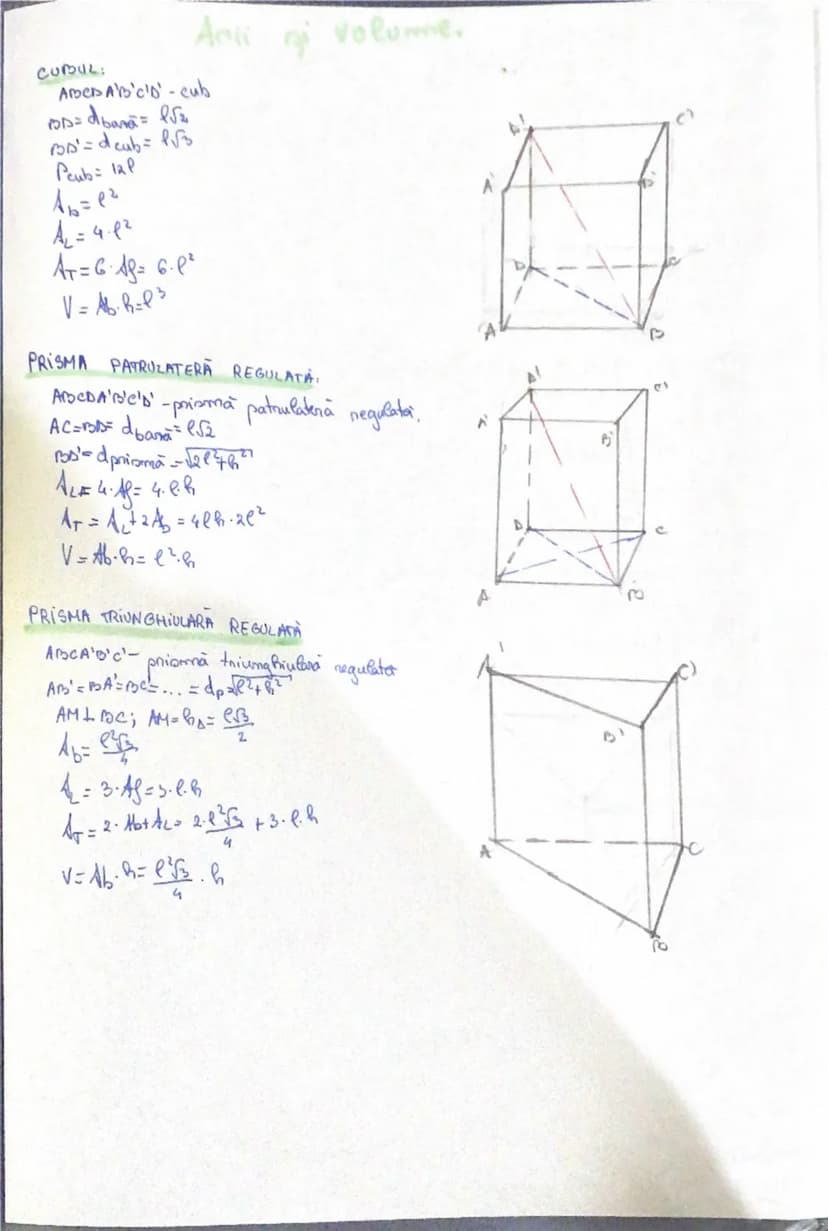 Arii și volume.
CUBUL:
ABCDA'B'C'D' - cub
BD = d bază = l√2
BD' = d cub = l√3
Pcub = 12l
Ab = l²
AL = 4·l²
AT = 6·Af = 6·l²
V = Ab·h = l³
D' C'
A' B'
D C
A B
PRISMA PATRULATERĂ REGULATĂ:
ABCDA'B'C'D' - prismă patrulateră regulată.
AC = BD = d bază = l√2
BD' = d prismă = √2l²+h²
AL = 4·Af = 4·l·h
AT = AL + 2Ab = 4lh·2l²
V = Ab·h = l²·h
D' C'
A' B'
D C
A B
PRISMA TRIUNGHIULARĂ REGULATĂ
ABCA'B'C' - prismă triunghiulară regulată
AB' = BA' = BC' = ... = dp = √l²+h²
AM ⊥ BC; AM = hΔ = l√3/2
Ab = l²√3/4
AL = 3·Af = 3·l·h
AT = 2·Ab + AL = 2·l²√3/4 + 3·l·h
V = Ab·h = l²√3/4 · h
A' C'
B'
A C
B